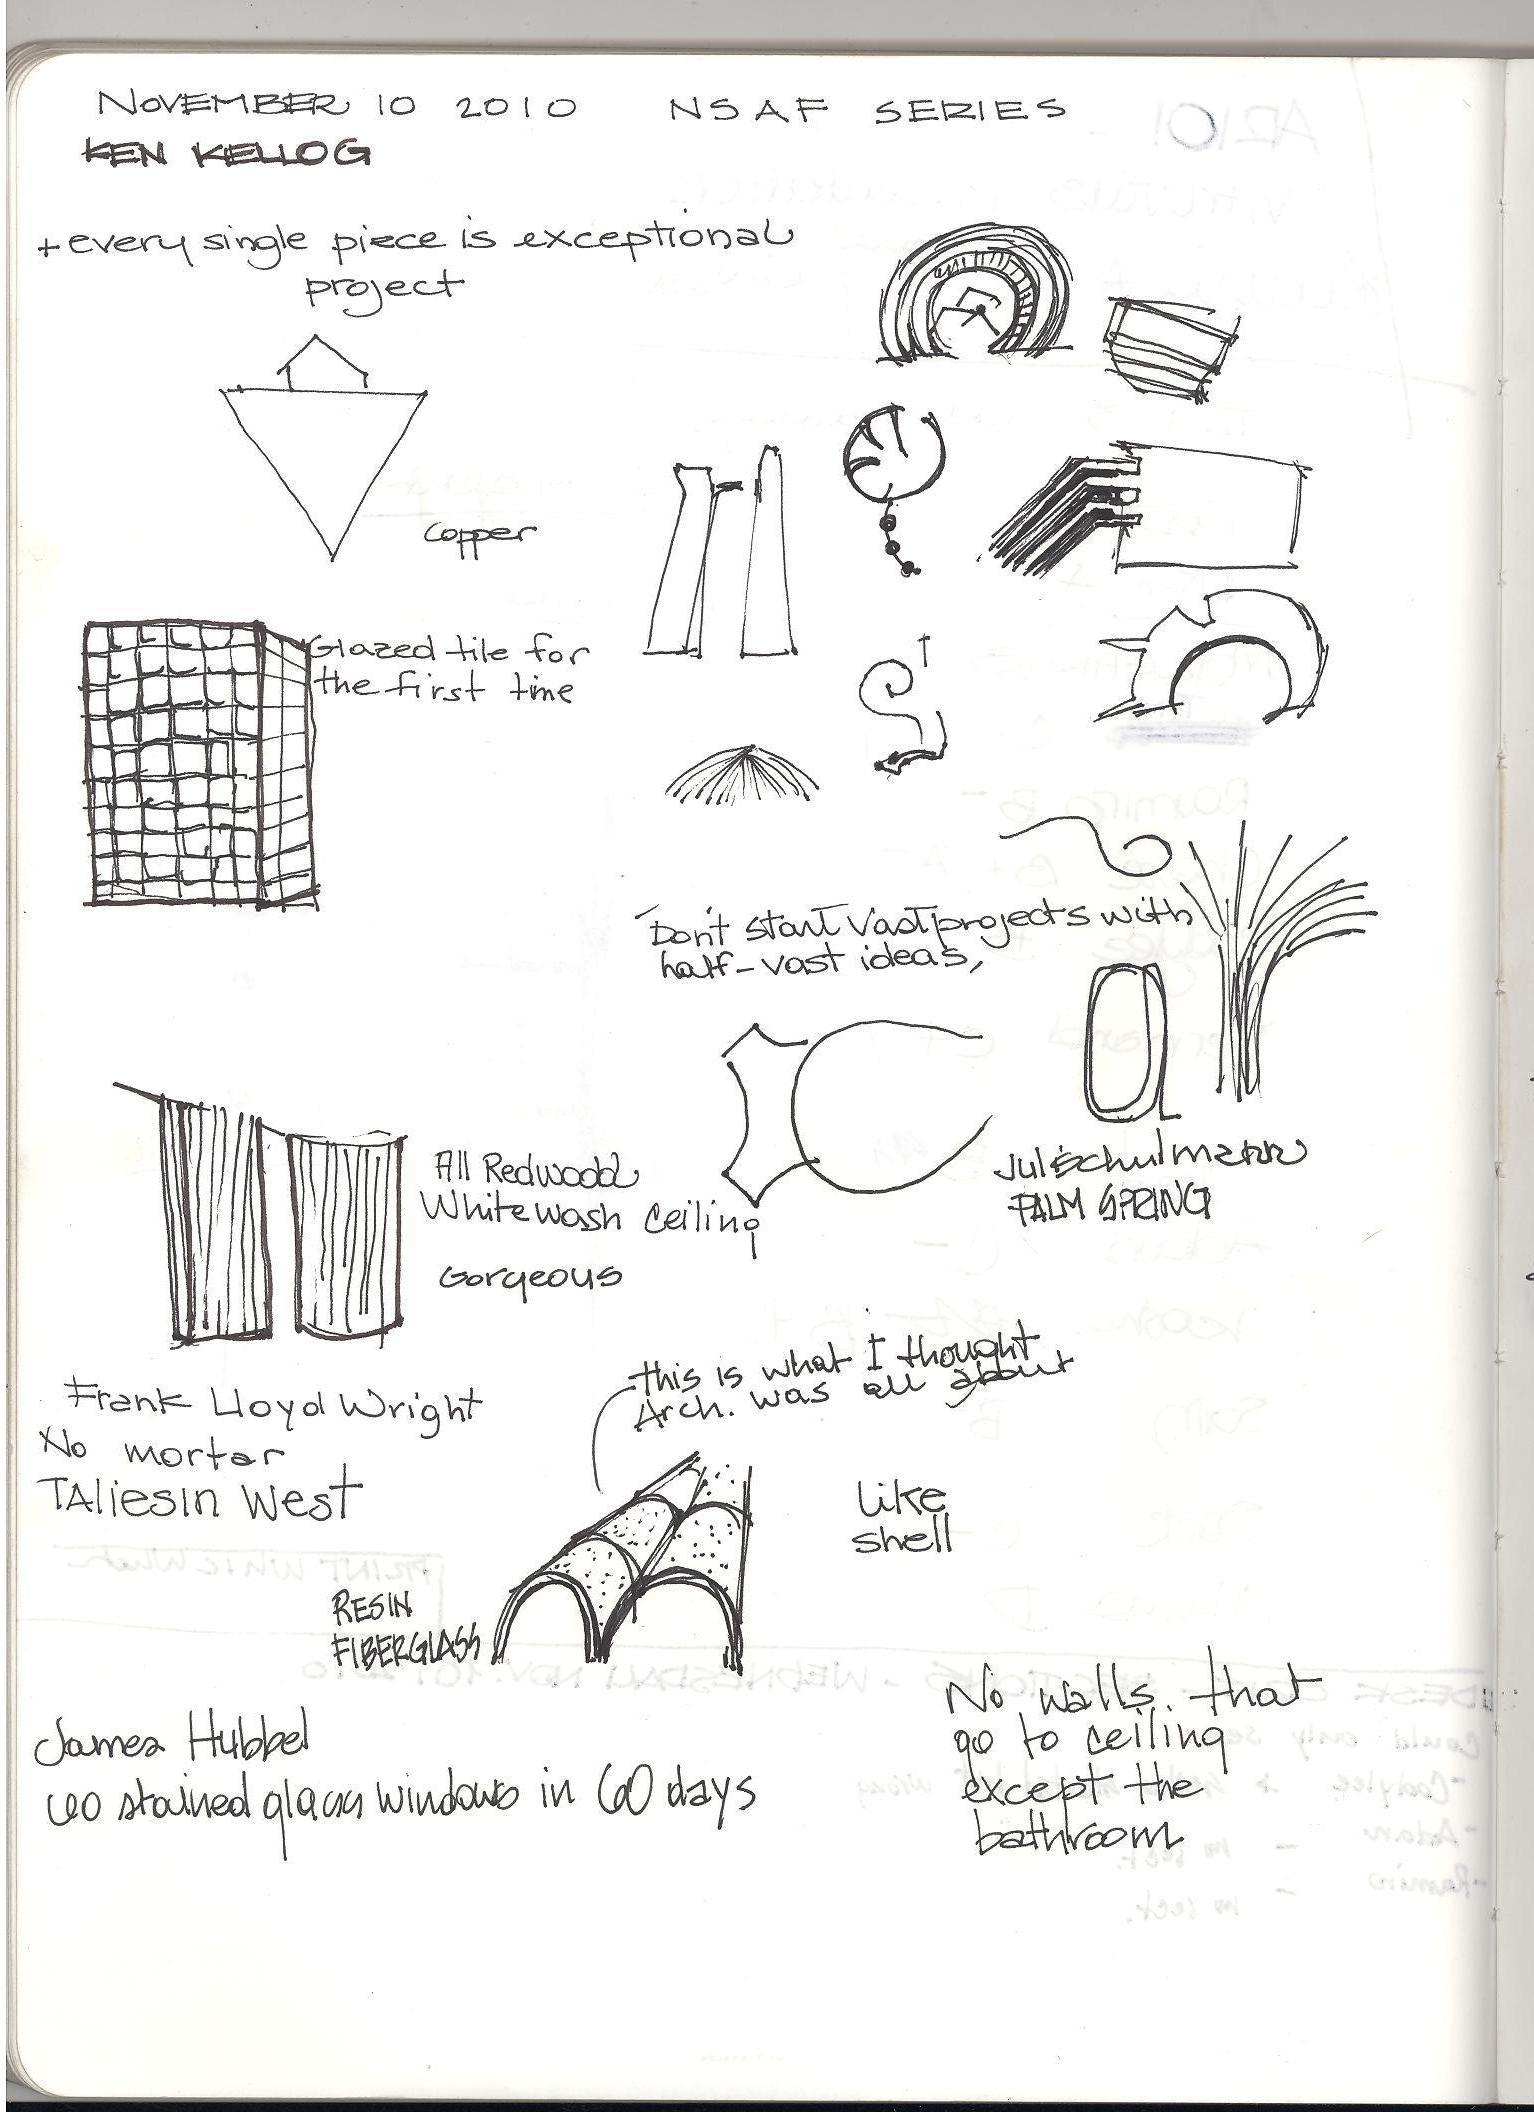 NOVEMBER 10 2010 NSAF SERIES
KEN KELLOG
+ every single piece is exceptional
project
copper
Glazed tile for
the first time
Don't start vast projects with
half-vast ideas,
Julschulmann
PALM SPRING
All Redwood
Whitewash ceiling
Gorgeous
this is what I thought
Arch. was all about
Frank Lloyd Wright
No mortar
TAliesin West
Like
shell
RESIN
FIBERGLASS
No walls that
go to ceiling
except the
bathroom
James Hubbel
60 stained glass windows in 60 days